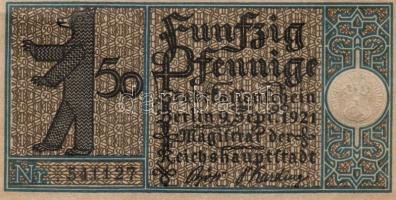 Funfzig
50 Pfennige
Stadtkassenschein
Berlin 9. Sept. 1921
Magistrat der
Reichshauptstadt
Nr. 541127